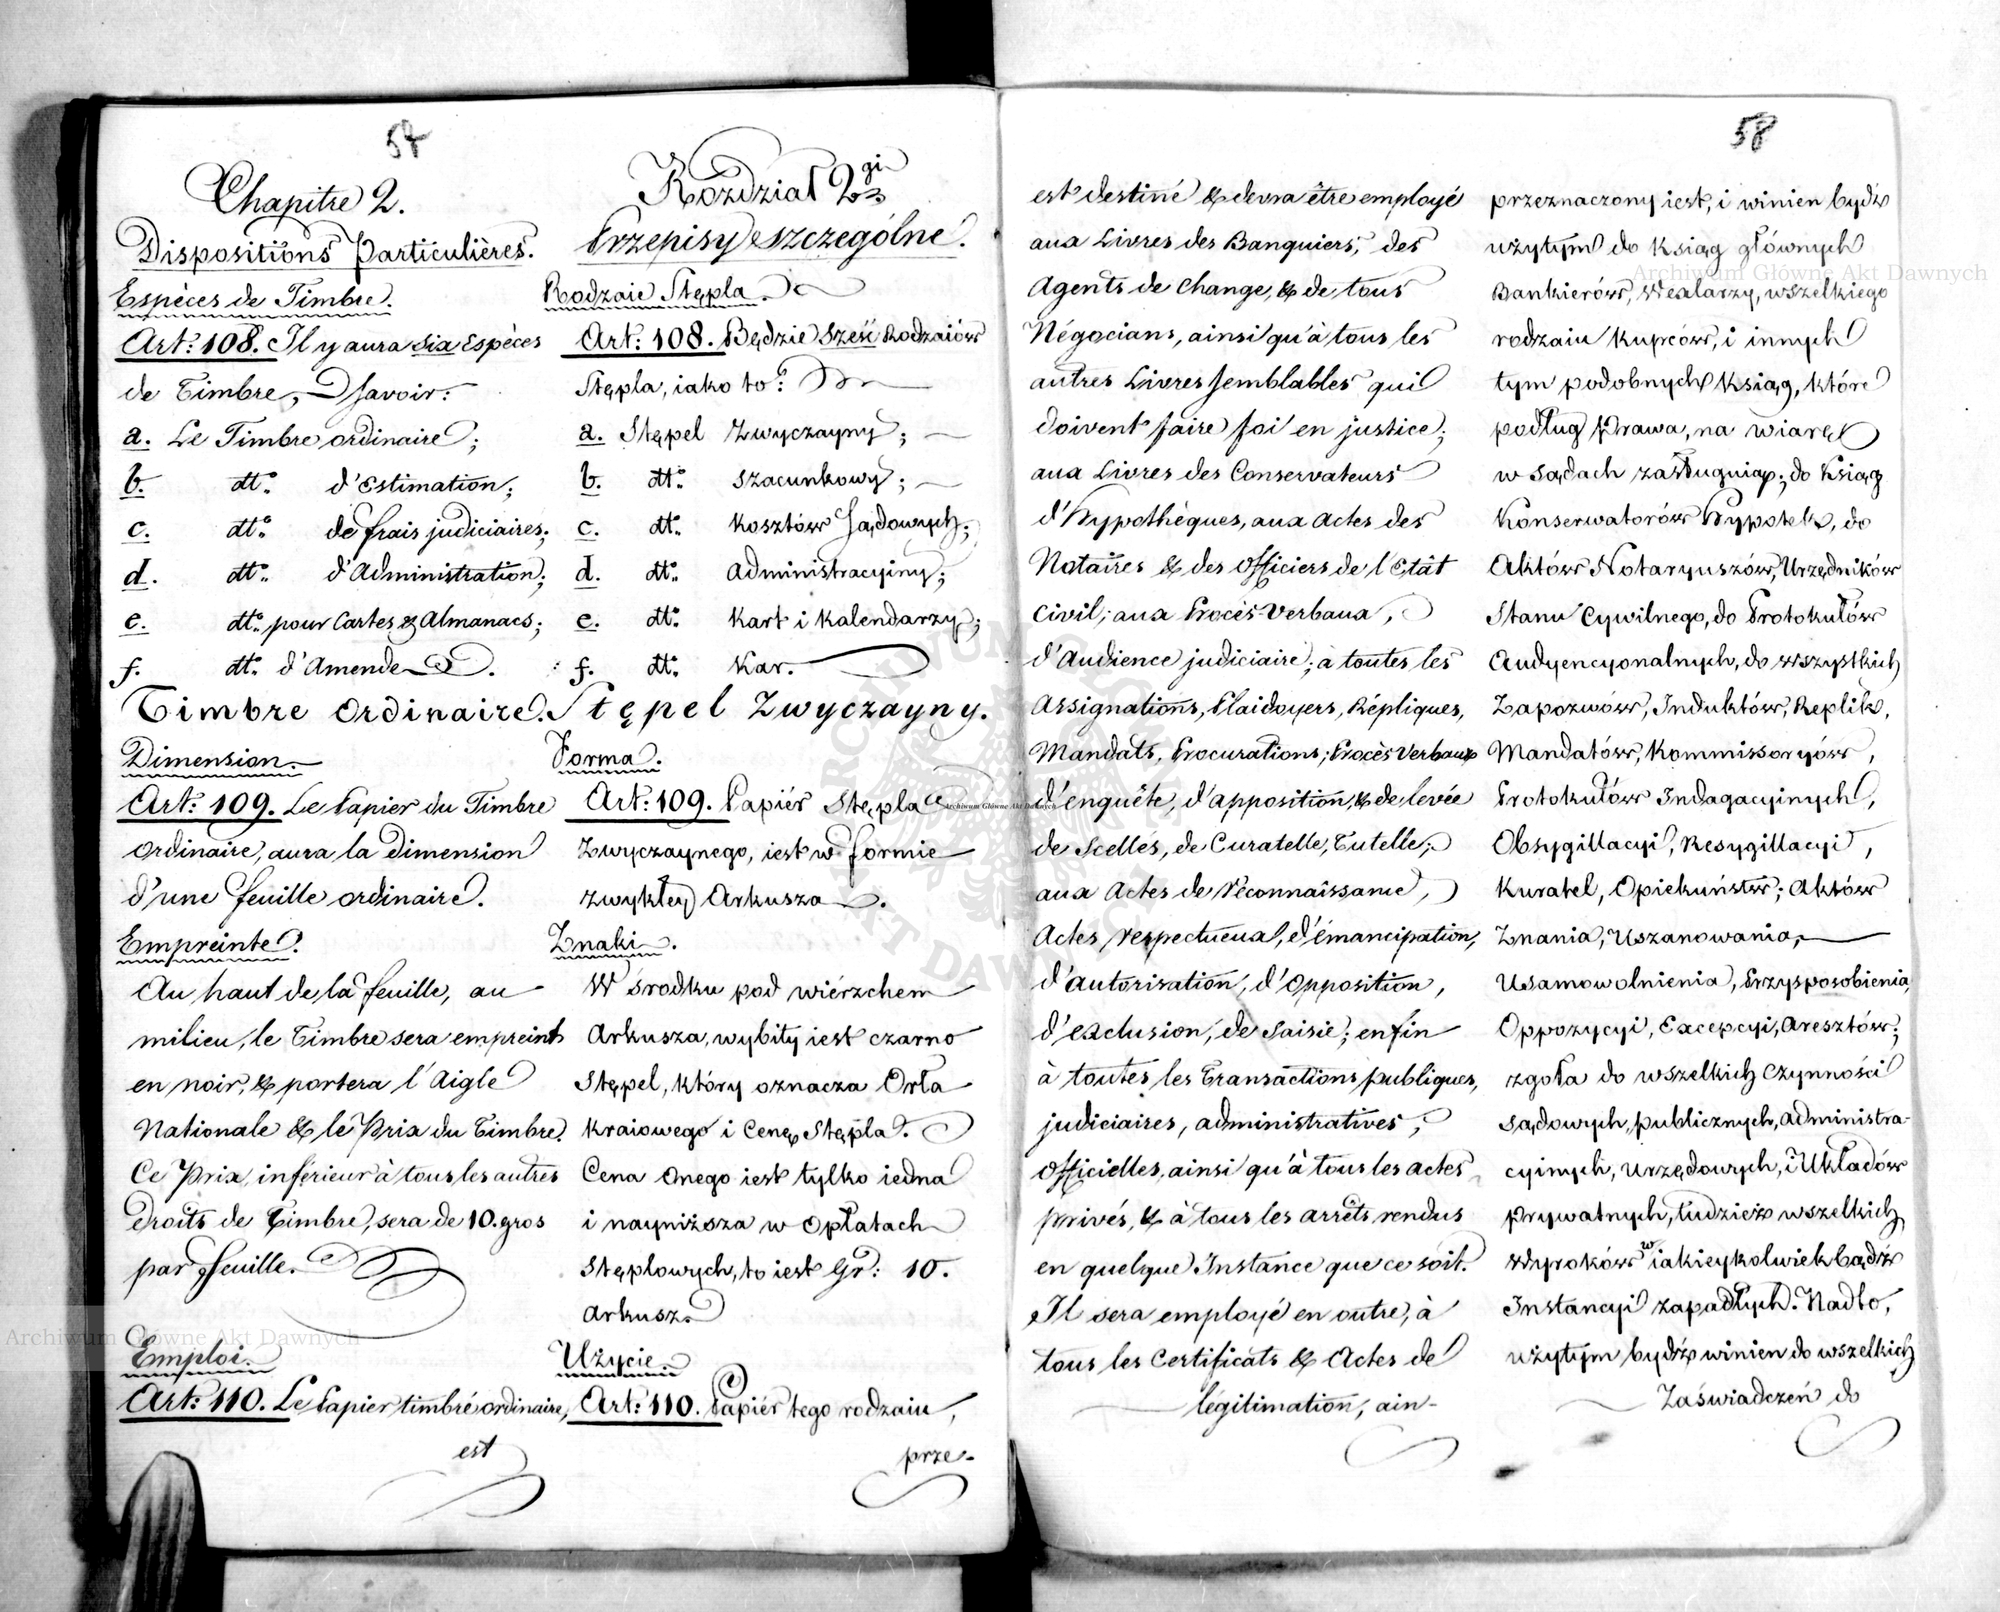 57
Chapitre 2.
Dispositions Particulières.
Espèces de Timbre.
Art: 108. Il y aura six Espèces
de Timbre, Savoir:
a. Le Timbre ordinaire;
b. dt:o d'Estimation;
c. dt:o de frais judiciaires;
d. dt:o d'Administration;
e. dt:o pour Cartes & Almanacs;
f. dt:o d'Amende.
Timbre Ordinaire.
Dimension.
Art: 109. Le Papier du Timbre
ordinaire, aura la dimension
d'une feuille ordinaire.
Empreinte.
Au haut de la feuille, au
milieu, le Timbre sera empreint
en noir, & portera l'Aigle
Nationale & le Prix du Timbre.
Ce Prix, inférieur à tous les autres
droits de Timbre, sera de 10. gros
par feuille.
Emploi.
Art: 110. Le Papier timbré ordinaire,
est
Rozdział 2gi
Przepisy szczególne.
Rodzaie Stępla.
Art: 108. Będzie sześć Rodzaiów
Stępla, iako to:
a. Stępel Zwyczayny;
b. dt:o Szacunkowy;
c. dt:o Kosztów Sądowych;
d. dt:o Administracyiny;
e. dt:o Kart i Kalendarzy;
f. dt:o Kar.
Stępel Zwyczayny.
Forma.
Art: 109. Papiér Stępla
Zwyczaynego, iest w formie
zwykłey Arkusza.
Znaki.
W środku pod wiérzchem
Arkusza, wybity iest czarno
Stępel, który oznacza Orła
Kraiowego i Cenę Stępla.
Cena onego iest tylko iedna
i nayniższa w Opłatach
Stęplowych, to iest Gr: 10.
Arkusz.
Użycie.
Art: 110. Papiér tego rodzaiu,
prze-
58
est destiné & devra être employé
aux Livres des Banquiers, des
Agents de Change, & de tous
Négocians, ainsi qu'à tous les
autres Livres semblables qui
doivent faire foi en justice;
aux Livres des Conservateurs
d'Hypothèques, aux Actes des
Notaires & des Officiers de l'Etât
Civil; aux Procès-Verbaux,
d'Audience judiciaire; à toutes les
Assignations, Plaidoyers, Répliques,
Mandats, Procurations; Procès Verbaux
d'enquête, d'apposition, & de levée
de Scellés, de Curatelle, Tutelle;
aux Actes de réconnaissance,
Actes respectueux, d'émancipation,
d'autorisation, d'Opposition,
d'exclusion, de Saisie; enfin
à toutes les Transactions publiques,
judiciaires, administratives,
Officielles, ainsi qu'à tous les actes
privés, & à tous les arrêts rendus
en quelque Instance que ce soit.
Il sera employé en outre, à
tous les Certificats & Actes de
légitimation, ain-
przeznaczony iest, i winien bydź
użytym do Ksiąg głównych
Bankierów, Wexlarzy, wszelkiego
rodzaiu Kupców, i innych
tym podobnych Ksiąg, które
podług Prawa, na wiarę
w Sądach zasługuią; do Ksiąg
Konserwatorów Hypotek, do
Aktów Notaryuszów, Urzędników
Stanu Cywilnego, do Protokułów
Audyencyonalnych, do wszystkich
Zapozwów, Induktów, Replik,
Mandatów, Kommissoryów,
Protokułów Indagacyinych,
Obsygillacyi, Resygillacyi,
Kuratel, Opiekuństw; Aktów
Znania, Uszanowania,
Usamowolnienia, Przysposobienia,
Oppozycyi, Excepcyi, Aresztów;
zgoła do wszelkich Czynności
Sądowych, publicznych, Administra-
cyinych, Urzędowych, i Układów
prywatnych, tudzież wszelkich
Wyroków w iakieykolwiek bądź
Instancyi zapadłych. Nadto,
użytym bydź winien do wszelkich
Zaświadczeń do
Archiwum Główne Akt Dawnych
Archiwum Główne Akt Dawnych
Archiwum Główne Akt Dawnych
ARCHIWUM GŁÓWNE AKT DAWNYCH